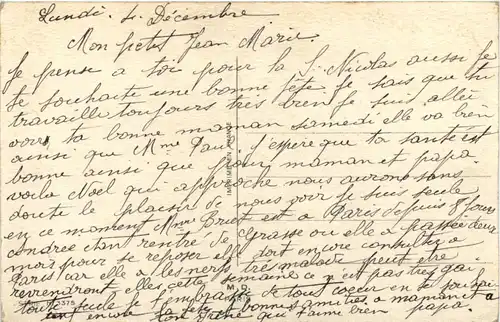 Lundi 4 Décembre
Mon petit Jean Marie.
Je pense a toi pour la S. Nicolas aussi je
te souhaite une bonne fête je sais que tu
travaille toujours très bien je suis allée
voir ta bonne maman samedi elle va bien
ainsi que Mme Paul j'espère que ta santé est
bonne ainsi que pour maman et papa
voila Noel qui approche nous aurons sans
doute le plaisir de nous voir je suis seule
en ce moment Mme Bruet est a Paris depuis 8 jours
étant rentré de Grasse ou elle a passée deux
mois pour se reposer elle doit encore consulter a
Paris car elle a les nerfs très malade peut être
reviendront elles cette semaine ce n'est pas très gai
toute seule je t'embrasse de tout coeur en te souhai
encore ta fête et bonnes amitiés a maman et a
ton qui t'aime bien papa.
IMPRIMERIE
3375
M. D.